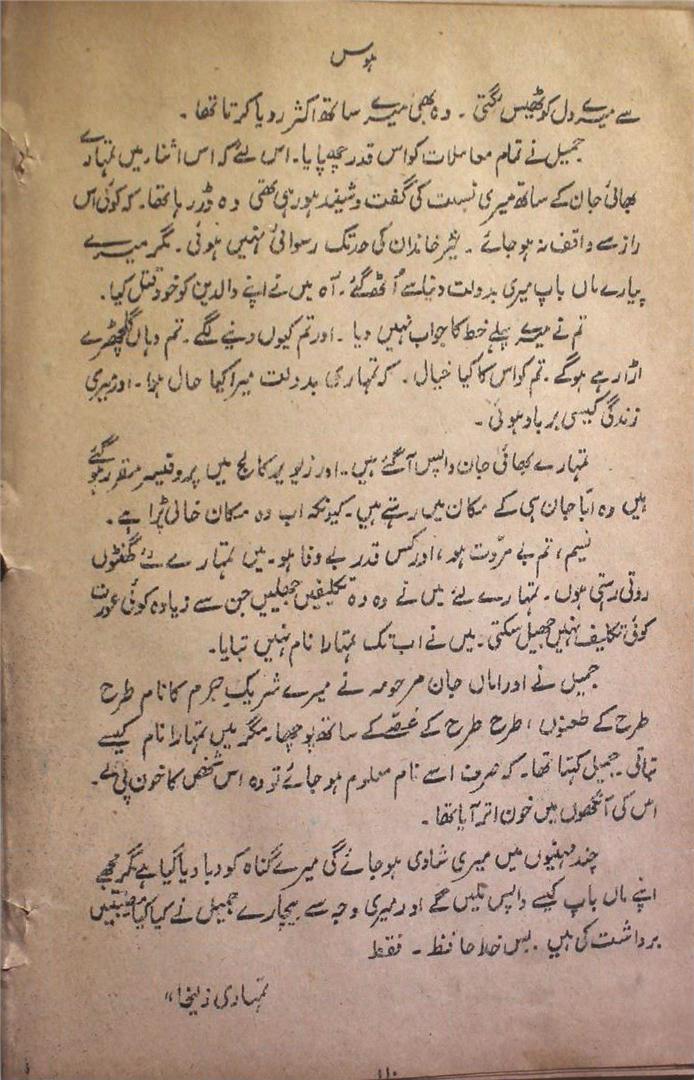 ہوس
سے میرے دل کو ٹھیس لگتی ۔ وہ بھی میرے ساتھ اکثر رویا کرتا تھا ۔
جمیل نے تمام معاملات کو اس قدر چھپایا۔ اس لئے کہ اس اثنا میں تمہارے
بھائی جان کے ساتھ میری نسبت کی گفت و شنید ہو رہی تھی وہ ڈر رہا تھا۔ کہ کوئی اس
راز سے واقف نہ ہو جائے ۔ خیر خاندان کی حد تک رسوائی نہیں ہوئی ۔ مگر میرے
پیارے ماں باپ میری بدولت دنیا سے اُٹھ گئے ۔ آہ میں نے اپنے والدین کو خود قتل کیا ۔
تم نے میرے پہلے خط کا جواب نہیں دیا ۔ اور تم کیوں دینے لگے ۔ تم وہاں گلچھرے
اڑا رہے ہو گے ۔ تم کو اس کا کیا خیال ۔ کہ تمہاری بدولت میرا کیا حال ہوا ۔ اور میری
زندگی کیسی برباد ہوئی ۔
تمہارے بھائی جان واپس آ گئے ہیں ۔ اور زیویر کالج میں پروفیسر مقرر ہو گئے
ہیں وہ ابا جان ہی کے مکان میں رہتے ہیں۔ کیونکہ اب وہ مکان خالی پڑا ہے ۔
نسیم، تم بے مروّت ہو ، اور کس قدر بے وفا ہو ۔ میں تمہارے لئے گھنٹوں
روتی رہتی ہوں ۔ تمہارے لئے میں نے وہ وہ تکلیفیں جھیلیں جن سے زیادہ کوئی عورت
کوئی تکلیف نہیں جھیل سکتی ۔ میں نے اب تک تمہارا نام نہیں بتایا۔
جمیل نے اور اماں جان مرحومہ نے میرے شریکِ جرم کا نام طرح
طرح کے طعنوں ، طرح طرح کے غصّے کے ساتھ پوچھا۔ مگر میں تمہارا نام کیسے
بتاتی ۔ جمیل کہتا تھا۔ کہ صرف اسے نام معلوم ہو جائے تو وہ اس شخص کا خون پی لے ۔
اس کی آنکھوں میں خون اتر آیا تھا ۔
چند مہینوں میں میری شادی ہو جائے گی میرے گناہ کو دبا دیا گیا ہے مگر مجھے
اپنے ماں باپ کیسے واپس ملیں گے اور میری وجہ سے بیچارے جمیل نے کیا کیا مصیبتیں
برداشت کی ہیں ۔ بس خدا حافظ ۔ فقط
تمہاری زلیخا"
۱۱۰